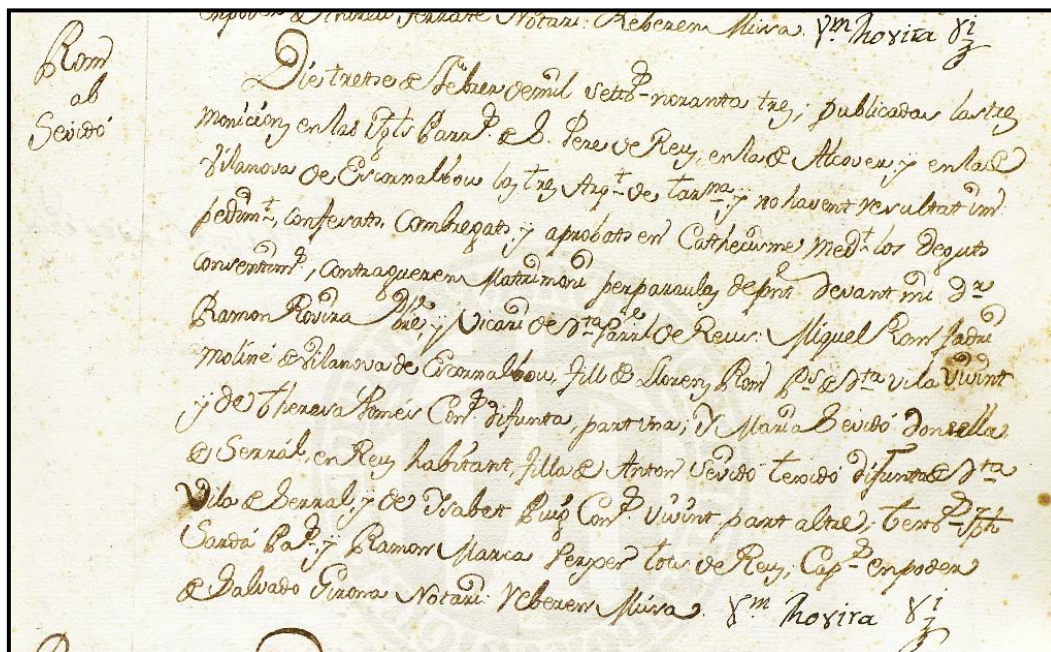 empoder de Andreu Ferrate Notari: Reberen Missa. Vm. Rovira
Rom
ab
Sevidó
Die tretse de Febrer de mil setts. noranta tres; publicadas las tres
monicions en las Igls. Parrls. de S. Pere de Reus, en la de Alcover, y en la de
Vilanova de Escornalbou los tres Arqt. de Tarrna. y no havent resultat im
pedimt., confesats, combregats, y aprobats en Cathecisme medt. los deguts
consentimts., contragueren Matrimoni per paraulas de pnt. devant mi Dr.
Ramon Rovira Pbre. y Vicari de dta. Parrl. de Reus: Miquel Rom fadri
moliné de Vilanova de Escornalbou, fill de Llorens Rom Ps. de dta. vila vivint
y de Theresa Conjs. difunta, part una; Y Maria Sevidó donsella
de Serrál, en Reus habitant, filla de Anton Sevidó Texidó difunt de dta.
Vila de Serral, y de Isabet Puig Conjs. vivint, part altre; Terts. Jph.
Sardá Pa. y Ramon Marca tots de Reus; Caps. en poder
de Salvado Girona Notari: Reberen Missa. Vm. Rovira